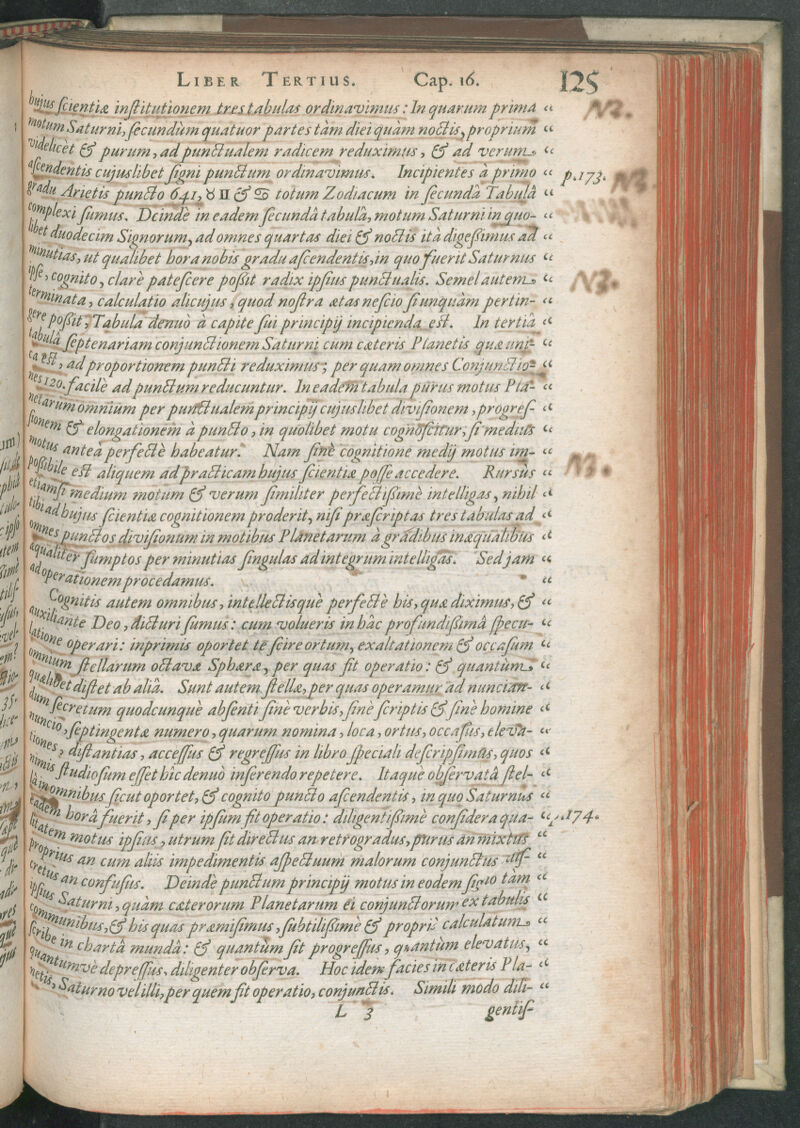 LIBER TERTIUS. Cap. 16. 125
hujus scientiæ institutionem tres tabulas ordinavimus: In quarum prima “ NB.
motum Saturni, secundùm quatuor partes tàm diei quàm noctis, proprium “
videlicèt & purum, ad punctualem radicem reduximus, & ad verum “
ascendentis cujuslibet signi punctum ordinavimus. Incipientes à primo “ p.173.
gradu Arietis puncto 641, ♉ ♊ & ♋ totum Zodiacum in secundâ Tabulâ “ NB
complexi sumus. Deindè in eadem secundâ tabulâ, motum Saturni in quo- “
libet duodecim Signorum, ad omnes quartas diei & noctis ità digeßimus ad “
minutias, ut qualibet hora nobis gradu ascendentis, in quo fuerit Saturnus “
ipse, cognito, clarè patescere poßit radix ipsius punctualis. Semel autem “ NB.
terminata, calculatio alicujus, quod nostra ætas nescio si unquàm pertin- “
gere poßit, Tabula denuò à capite sui principij incipienda est. In tertiâ “
tabulâ septenariam conjunctionem Saturni cum cæteris Planetis quæ uni- “
ca est, ad proportionem puncti reduximus; per quam omnes Conjunctio- “
nes 120. facilè ad punctum reducuntur. In eadem tabula purus motus Pla- “
netarum omnium per punctualem principij cujuslibet divisionem, progres- “
sionem & elongationem à puncto, in quolibet motu cognoscitur, si medius “
motus antea perfectè habeatur. Nam sinè cognitione medij motus im- “
poßibile est aliquem ad practicam hujus scientiæ posse accedere. Rursùs “ NB.
etiamsi medium motum & verum similiter perfectißimè intelligas, nihil “
tibi ad hujus scientiæ cognitionem proderit, nisi præscriptas tres tabulas ad “
omnes punctos divisionum in motibus Planetarum à gradibus inæqualibus “
æqualiter sumptos per minutias singulas ad integrum intelligas. Sed jam “
ad operationem procedamus. “
Cognitis autem omnibus, intellectisquè perfectè his, quæ diximus, & “
auxiliante Deo, dicturi sumus: cum volueris in hâc profundißimâ specu- “
latione operari: inprimis oportet te scire ortum, exaltationem & occasum “
omnium stellarum octavæ Sphæræ, per quas fit operatio: & quantùm “
quælibet distet ab aliâ. Sunt autem stellæ, per quas operamur ad nuncian- “
dum secretum quodcunquè absenti sinè verbis, sinè scriptis & sinè homine “
nuncio, septingentæ numero, quarum nomina, loca, ortus, occasus, eleva- “
tiones, distantias, accessus & regressus in libro speciali descripsimus, quos “
nimis studiosum esset hîc denuò inserendo repetere. Itaque observatâ stel- “
lâ in omnibus sicut oportet, & cognito puncto ascendentis, in quo Saturnus “
eadem horâ fuerit, si per ipsum fit operatio: diligentißimè considera qua- “ p.174.
litatem motus ipsius, utrum sit directus an retrogradus, purus an mixtus “
proprius an cum aliis impedimentis aspectuum malorum conjunctus dis- “
cretus an confusus. Deindè punctum principij motus in eodem signo tàm “
ipsius Saturni, quàm cæterorum Planetarum ei conjunctorum ex tabulis “
communibus, & his quas præmisimus, subtilißimè & propriè calculatum “
scribe in chartâ mundâ: & quantùm sit progressus, quantùm elevatus, “
quantumvè depressus, diligenter observa. Hoc idem facies in cæteris Pla- “
netis, Saturno vel illi, per quem fit operatio, conjunctis. Simili modo dili- “
L 3 gentis-